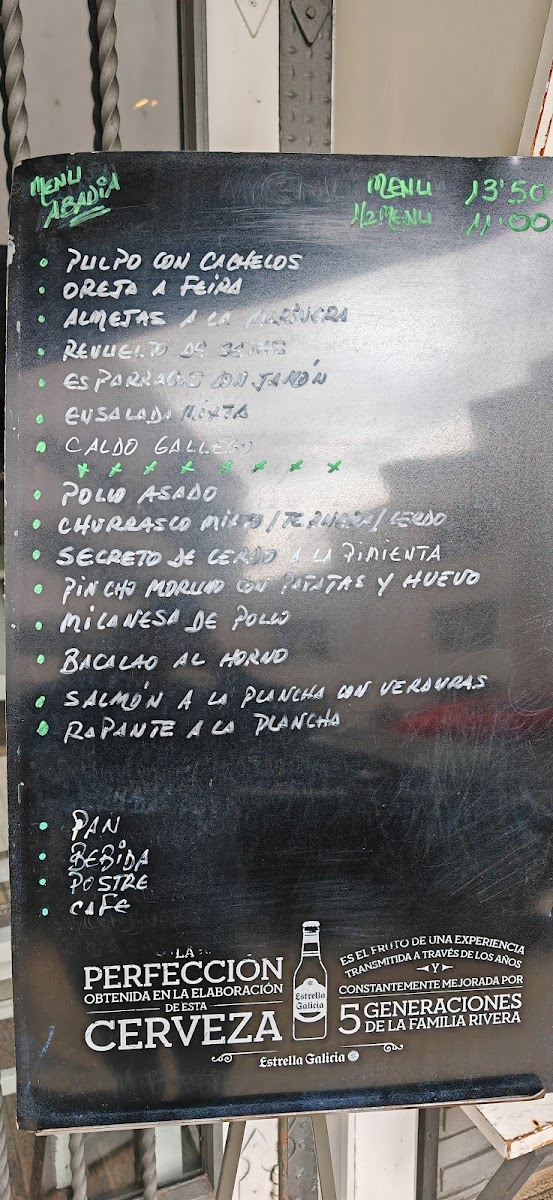 MENU
ABADÍA
MENU 13'50
1/2 MENU 11'00
PULPO CON CACHELOS
OREJA A FEIRA
ALMEJAS A LA MARINERA
REVUELTO DE SETAS
ESPARRAGOS CON JAMÓN
ENSALADA MIXTA
CALDO GALLEGO
POLLO ASADO
CHURRASCO MIXTO/TERNERA/CERDO
SECRETO DE CERDO A LA PIMIENTA
PINCHO MORUNO CON PATATAS Y HUEVO
MILANESA DE POLLO
BACALAO AL HORNO
SALMÓN A LA PLANCHA CON VERDURAS
RAPANTE A LA PLANCHA
PAN
BEBIDA
POSTRE
CAFE
LA
PERFECCIÓN
OBTENIDA EN LA ELABORACIÓN
DE ESTA
CERVEZA
Estrella Galicia
ES EL FRUTO DE UNA EXPERIENCIA
TRANSMITIDA A TRAVÉS DE LOS AÑOS
Y
CONSTANTEMENTE MEJORADA POR
5 GENERACIONES
DE LA FAMILIA RIVERA
Estrella Galicia